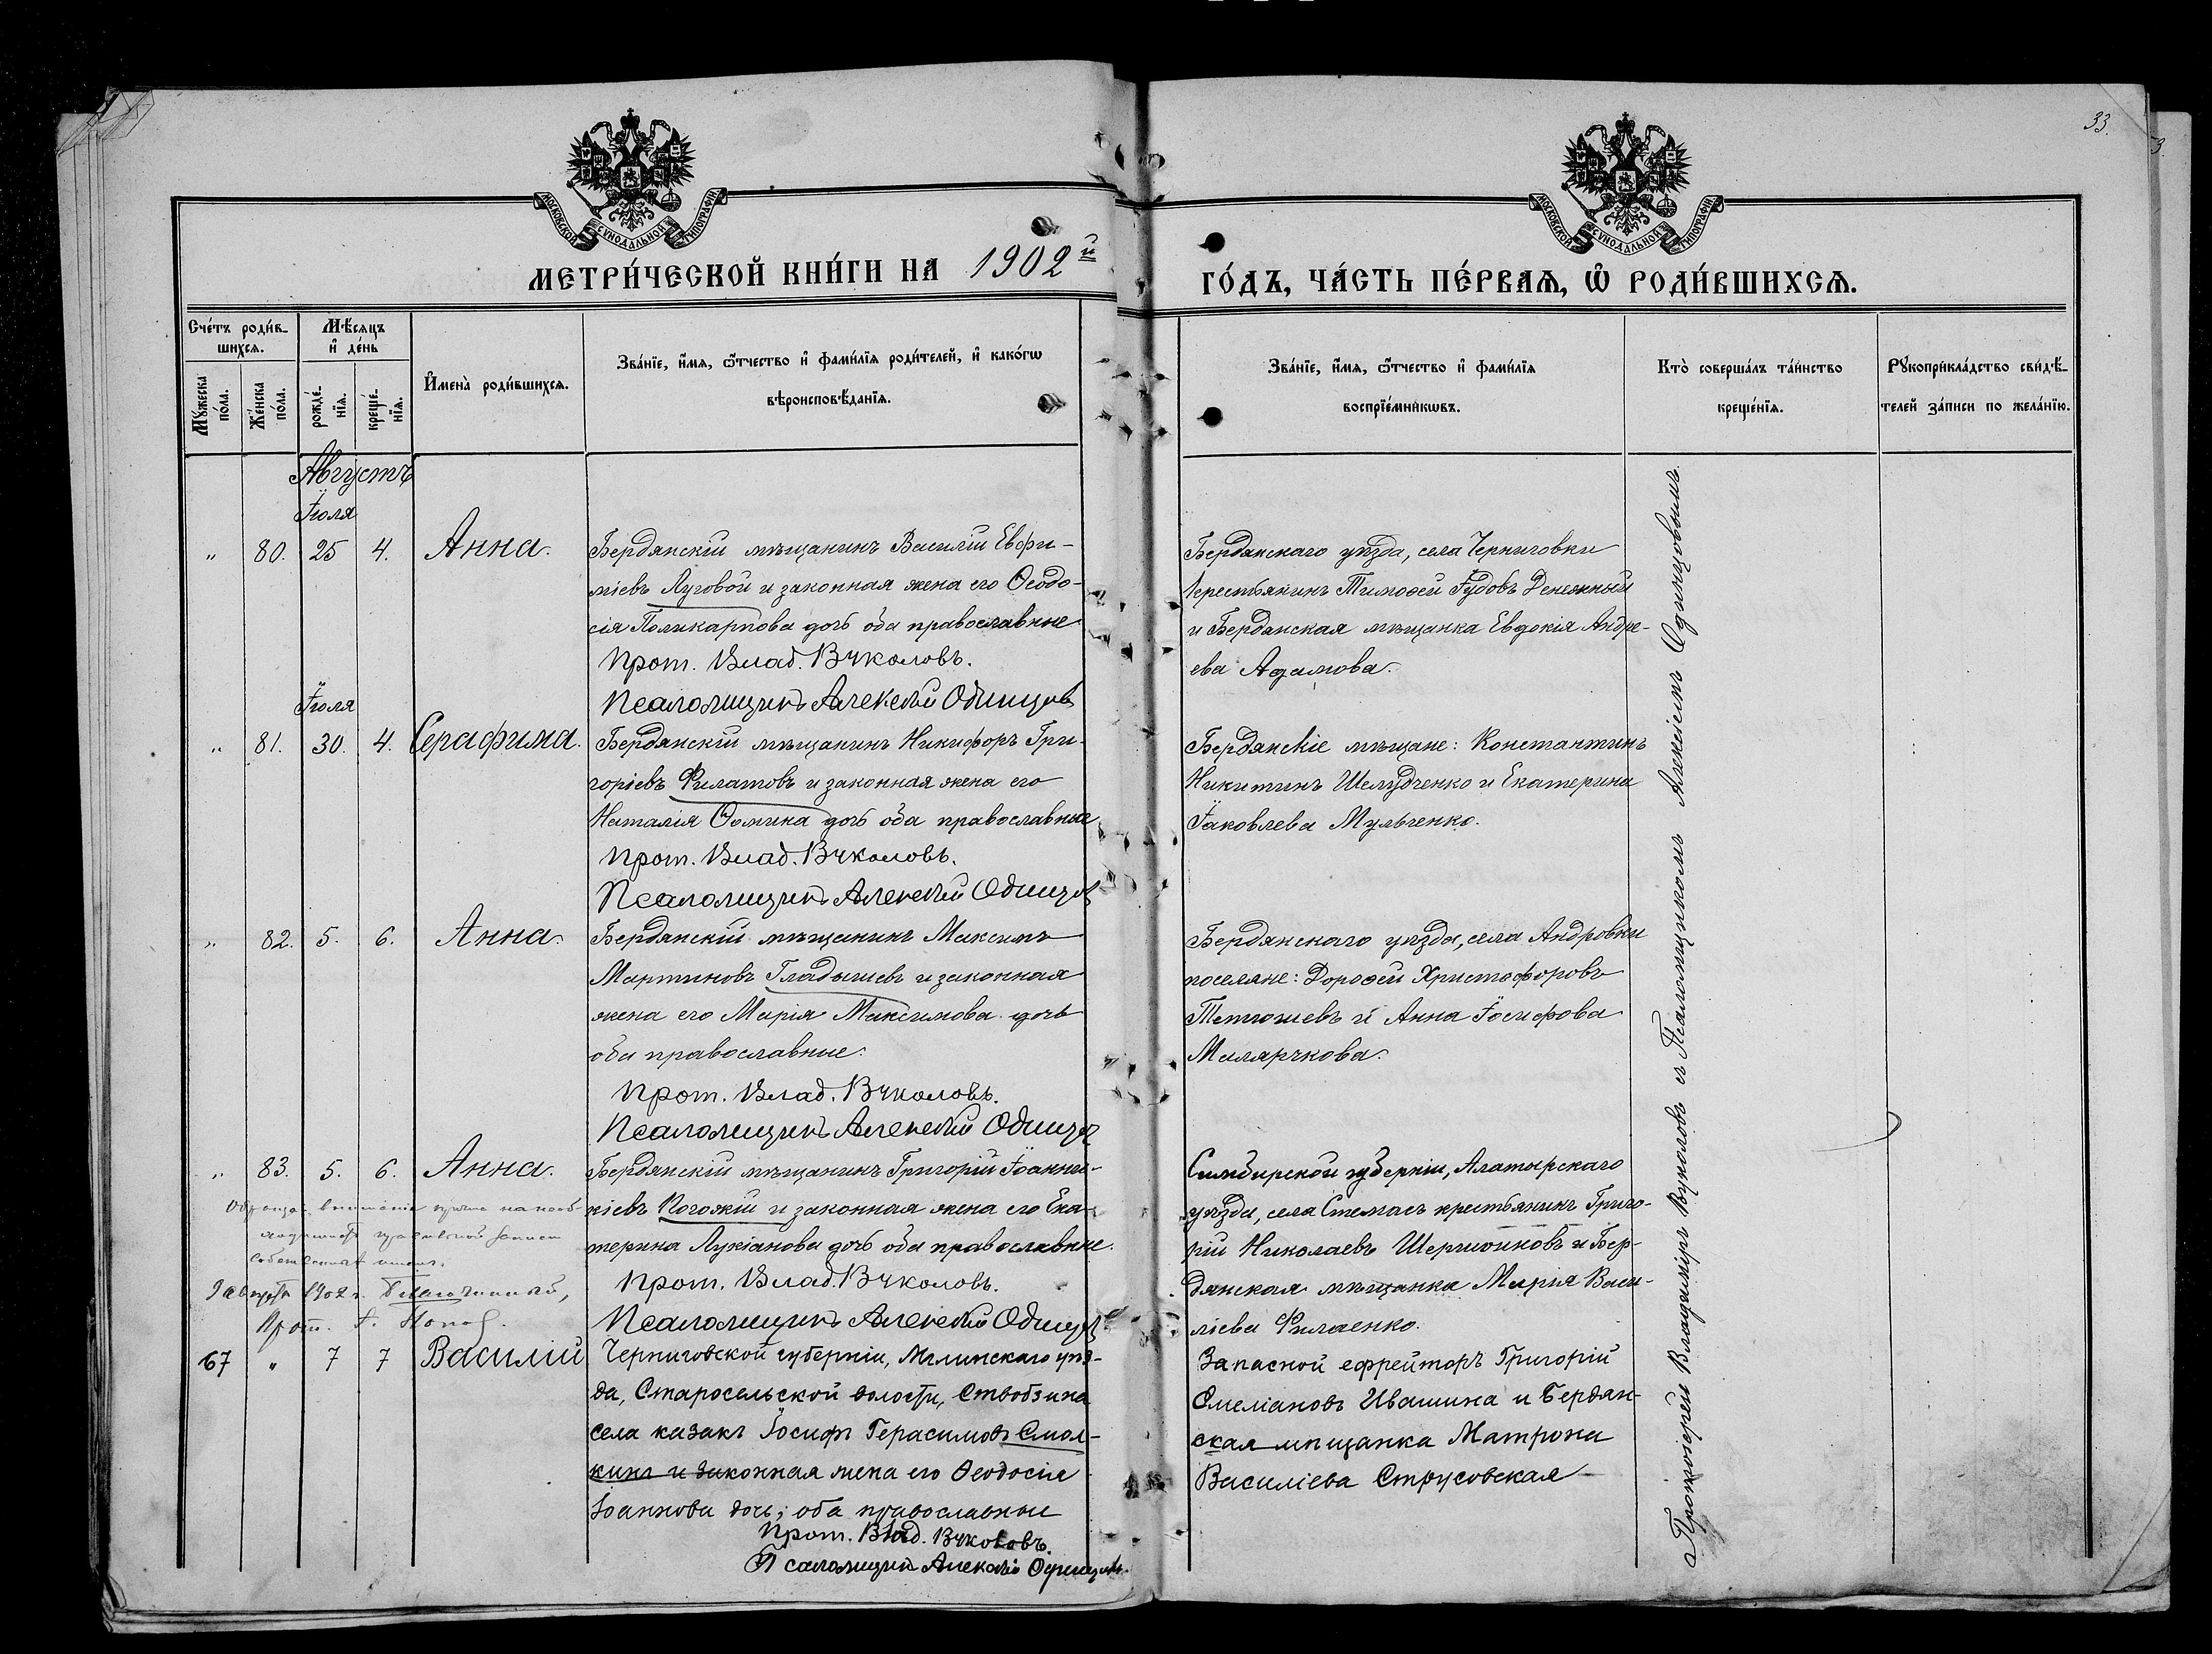 33.
МОСКОВСКОЙ СѴНОДАЛЬНОЙ ТИПОГРАФІИ
МОСКОВСКОЙ СѴНОДАЛЬНОЙ ТИПОГРАФІИ
МЕТРИ́ЧЕСКОЙ КНИ́ГИ НА 1902й ГО́ДЪ, ЧА́СТЬ ПЕ́РВАѦ, Ѡ РОДИ́ВШИХСѦ.
Сче́тъ роди́в-
шихсѧ.
Мѣ́сѧцъ
и҆ де́нь
Мꙋ́жеска
по́ла.
Же́нска
по́ла.
рожде́-
нїѧ.
креще́-
нїѧ.
И҆мена̀ роди́вшихсѧ.
Зва́нїе, и҆́мѧ, ѻ҆́тчество и҆ фами́лїѧ роди́телей, и҆ како́гѡ
вѣроисповѣ́данїѧ.
Зва́нїе, и҆́мѧ, ѻ҆́тчество и҆ фами́лїѧ
воспрїе́мникѡвъ.
Кто̀ соверша́лъ та́инство
креще́нїѧ.
Рꙋкоприкла́дство свидѣ́-
телей за́писи по жела́нїю.
Августъ
Іюля
" 80. 25 4. Анна.
Бердянскій мѣщанинъ Василій Евфи-
міевъ Луговой и законная жена его Ѳеодо-
сія Поликарпова дочь оба православные
Прот. Влад. Вуколовъ.
Псаломщикъ Алексѣй Одинцов
Бердянскаго уѣзда, села Черниговки
крестьянинъ Тимоѳей Іудовъ Денежный
и Бердянская мѣщанка Евдокія Андре-
ева Адамова.
Іюля
" 81. 30. 4. Серафима.
Бердянскій мѣщанинъ Никифоръ Гри-
горіевъ Филатовъ и законная жена его
Наталія Ѳомина дочь оба православные
Прот. Влад. Вуколовъ.
Псаломщикъ Алексѣй Одинцов
Бердянскіе мѣщане: Константинъ
Никитинъ Шелудченко и Екатерина
Іаковлева Мульченко.
" 82. 5. 6. Анна.
Бердянскій мѣщанинъ Максимъ
Мартиновъ Гладышевъ и законная
жена его Марія Максимова дочь
оба православные.
Прот. Влад. Вуколовъ.
Псаломщикъ Алексѣй Одинцов
Бердянскаго уѣзда, села Андровки
поселяне: Дороѳей Христофоровъ
Тетюшевъ и Анна Іосифова
" 83. 5. 6. Анна.
Бердянскій мѣщанинъ Григорій Іоанни-
кіевъ Рогожій и законная жена его Ека-
терина Лукіанова дочь оба православные.
Прот. Влад. Вуколовъ.
Псаломщикъ Алексѣй Одинцов
Симбирской губерніи, Алатырскаго
уѣзда, села Стемасъ крестьянинъ Григо-
рій Николаевъ и Бер-
дянская мѣщанка Марія Васи-
ліева Филаенко.
вниманіе на необ-
записи
9 августа 1902 г. Благочинный,
Прот. Попов.
67 " 7 7 Василій
Черниговской губерніи, Мглинскаго уѣз-
да, Старосельской волости,
села казакъ Іосифъ Герасимовъ Смол-
кинъ и законная жена его Ѳеодосія
Іоаннова дочь; оба православные
Прот. Влад. Вуколовъ.
Псаломщикъ Алексѣй Одинцовъ.
Запасной ефрейторъ Григорій
Омеліановъ Ивашина и Бердян-
ская мѣщанка Матрона
Василіева Струсовская
Протоіерей Владиміръ Вуколовъ съ Псаломщикомъ Алексіемъ Одинцовымъ.